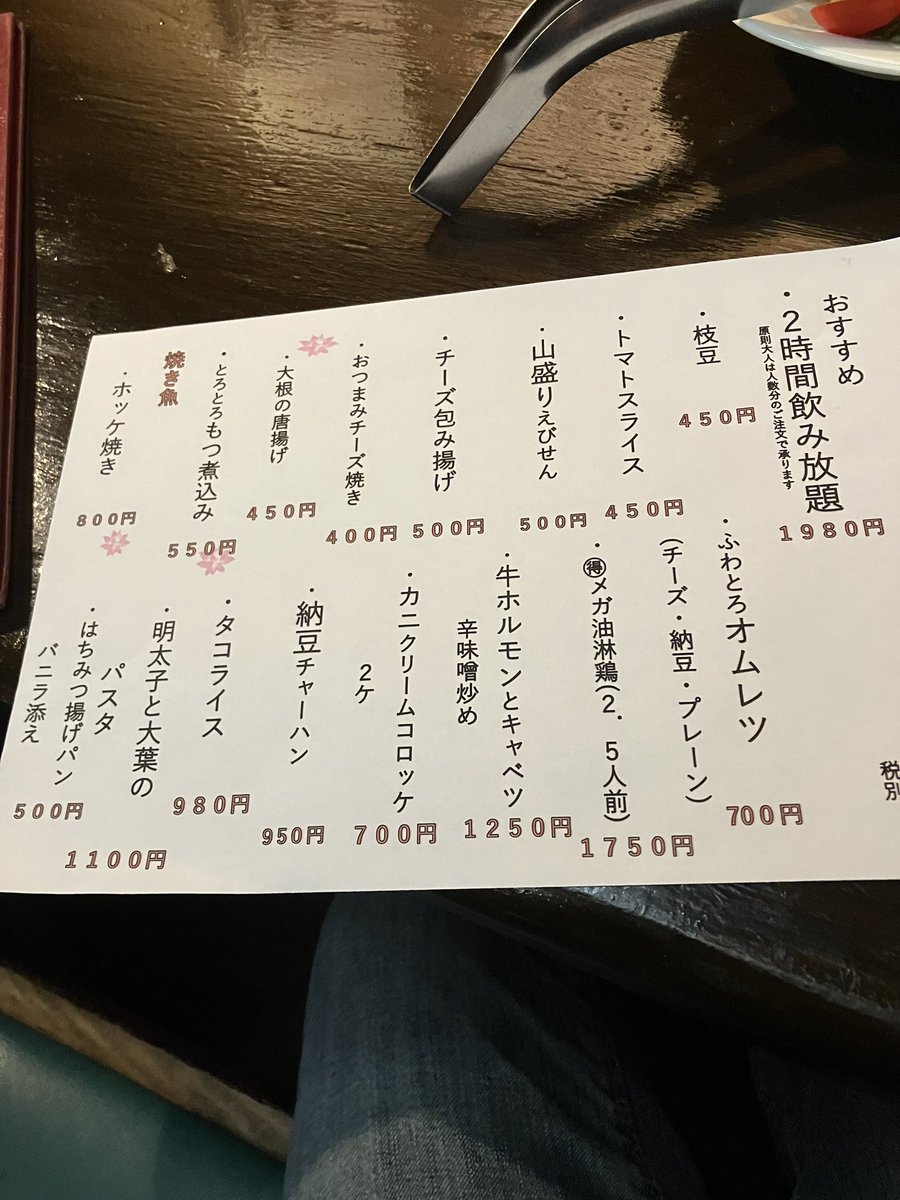 おすすめ
・2時間飲み放題
原則大人は人数分のご注文で承ります
1980円
・枝豆
450円
・トマトスライス
450円
・山盛りえびせん
500円
・チーズ包み揚げ
500円
・おつまみチーズ焼き
400円
・大根の唐揚げ
450円
・とろとろもつ煮込み
550円
焼き魚
・ホッケ焼き
800円
税別
・ふわとろオムレツ
(チーズ・納豆・プレーン)
700円
・㊝メガ油淋鶏(2.5人前)
1750円
・牛ホルモンとキャベツ
辛味噌炒め
1250円
・カニクリームコロッケ
2ケ
700円
・納豆チャーハン
950円
・タコライス
980円
・明太子と大葉の
パスタ
1100円
・はちみつ揚げパン
バニラ添え
500円